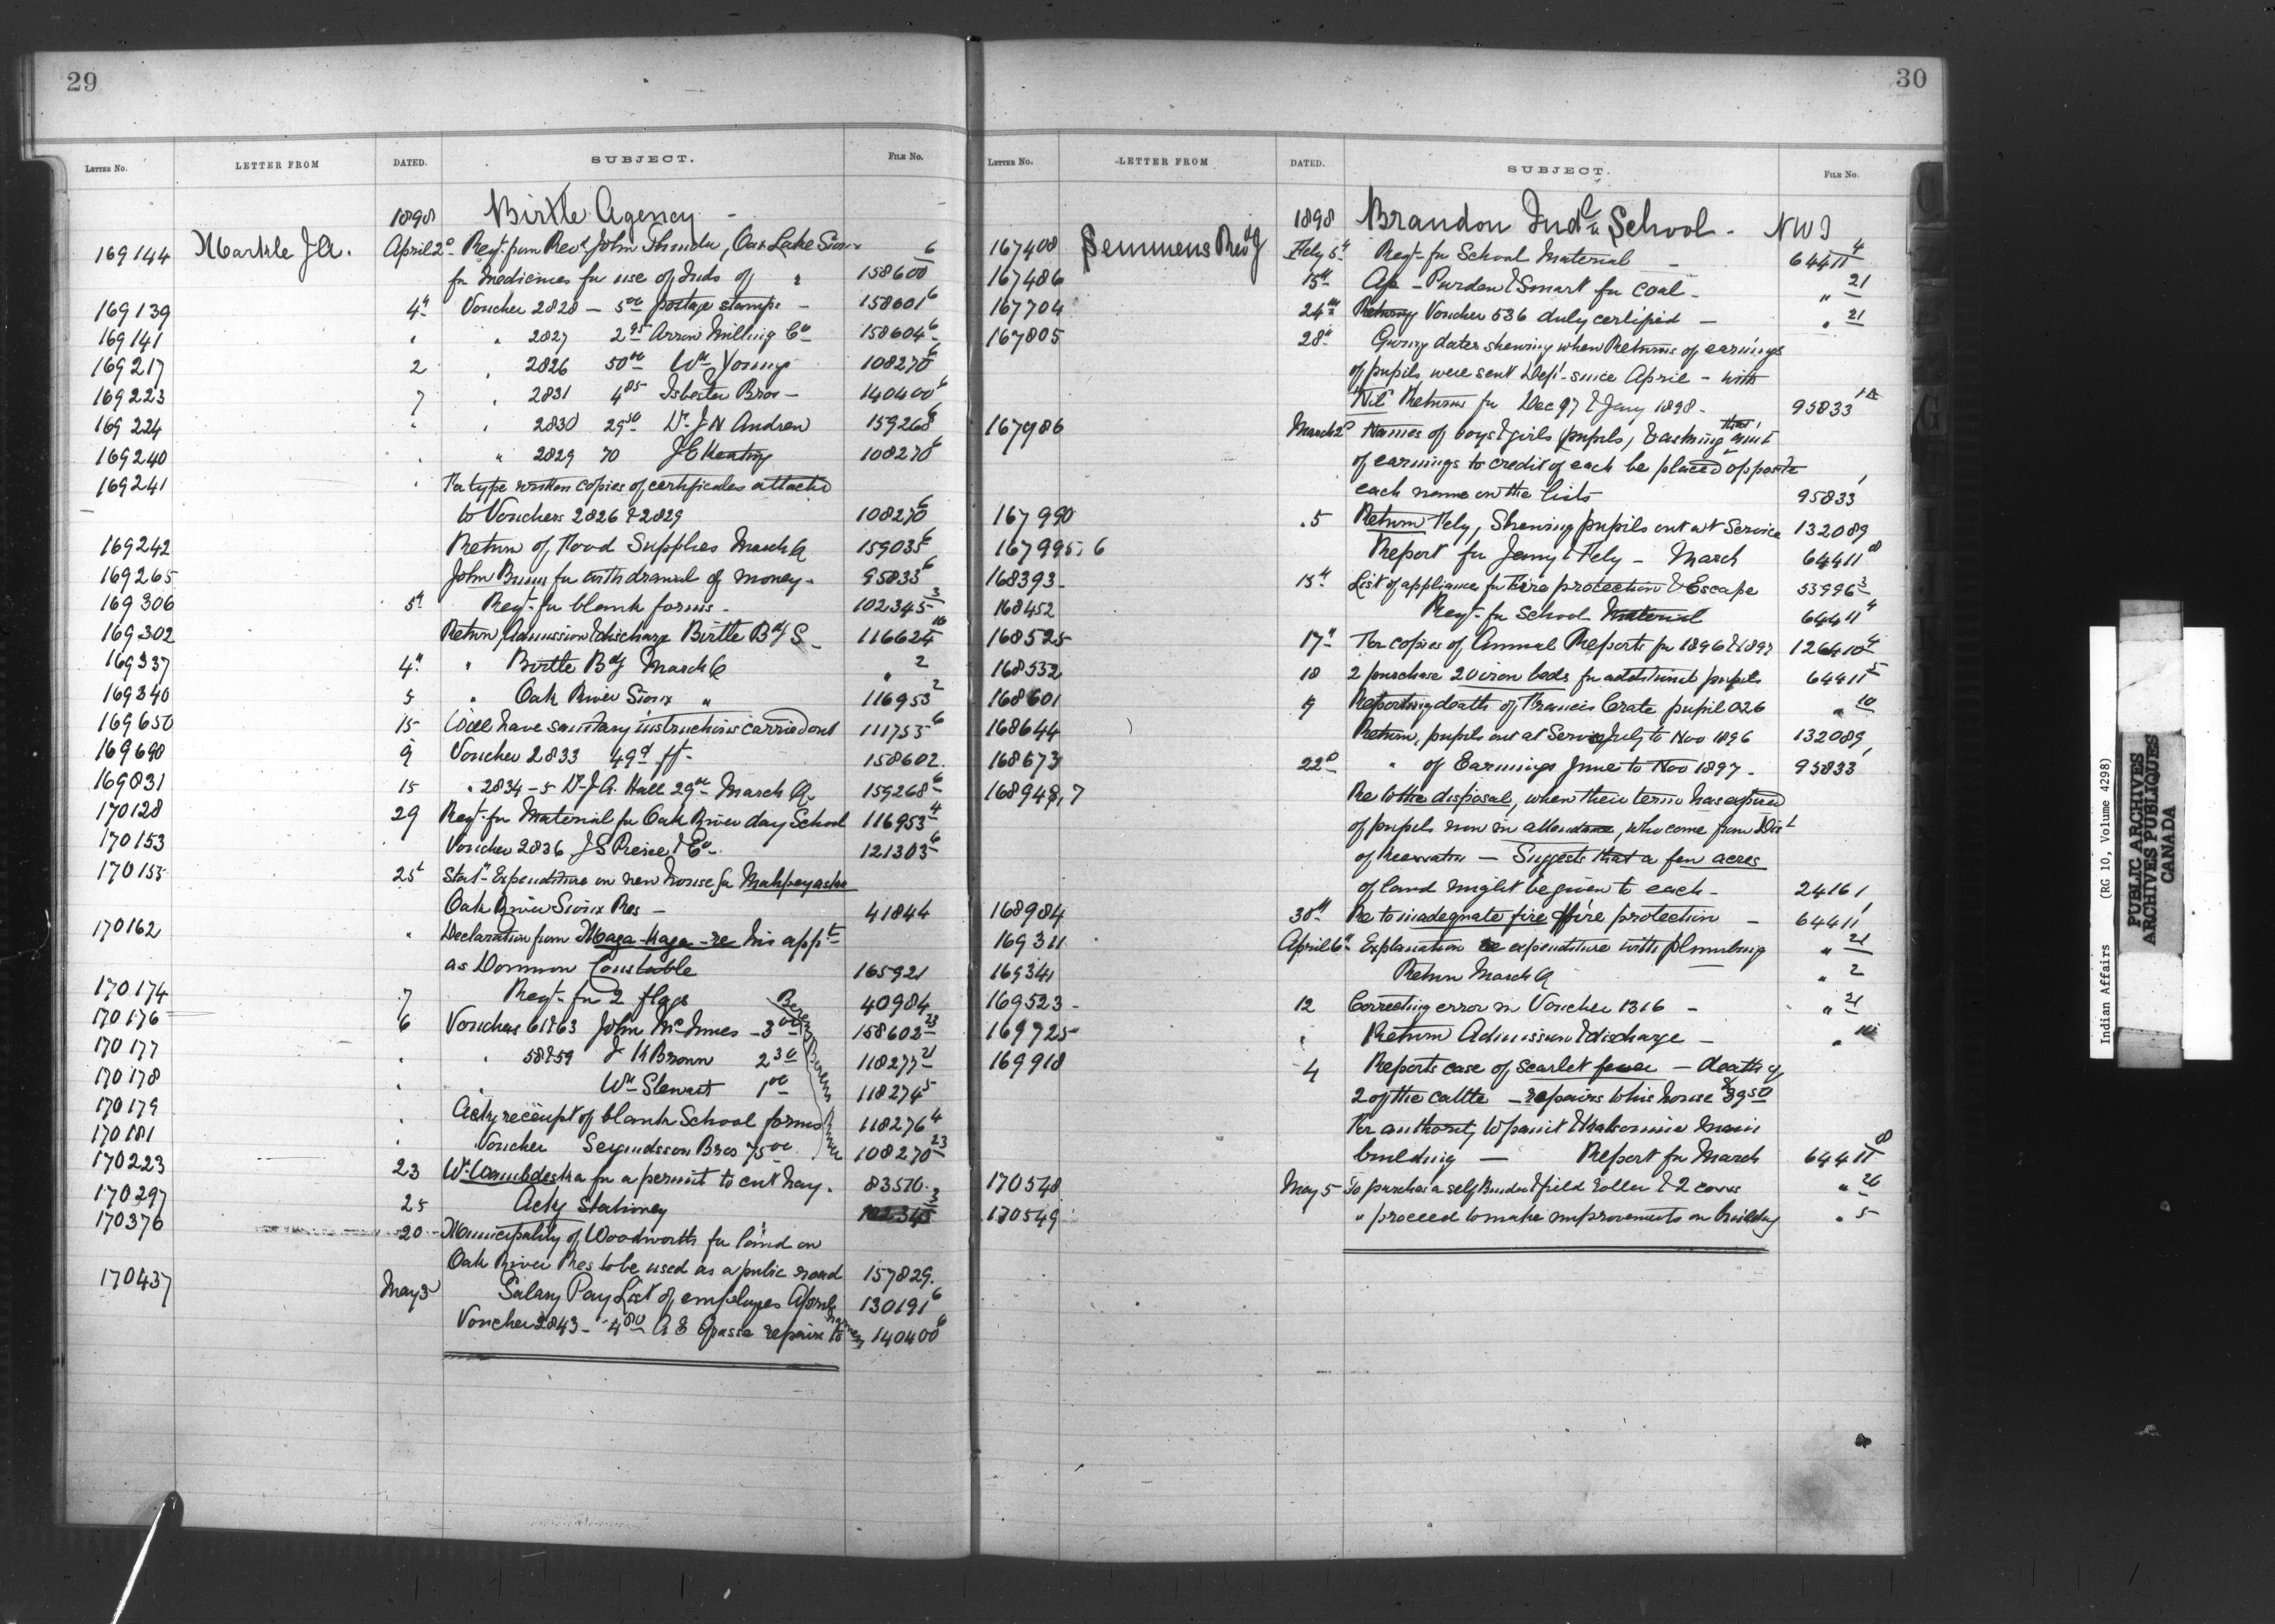 29
LETTER No. LETTER FROM DATED. SUBJECT. FILE No.
1898 Birtle Agency -
169144 Markle J.A. April 2d Reqt. from Revd John Thunder, Oak Lake Sioux 6
for medicines for use of Inds of " 158600
169139 4th Voucher 2828 - 5.00 postage stamps - 158601 6
169141 " " 2827 2.95 Arrow Milling Co 158604 6
169217 2 " 2826 50.00 Wm Young 108270 6
169223 7 " 2831 4.85 Isbester Bros - 140400 6
169224 " " 2830 29.50 Dr. J N Andrew 159268 6
169240 " " 2829 70 J E Keating 108270 6
169241 " For type written copies of certificates attached
to Vouchers 2826 & 2829 108270 6
169242 Return of Food Supplies March Q 159035 6
169265 John Bunn for withdrawal of money - 95833 6
169306 5th Reqt. for blank forms - 102345 3
169302 Return Admission & discharge Birtle Bdg S - 116624 10
169337 4th " Birtle Bdg March Q " 2
169340 5 " Oak River Sioux " 116953 2
169650 15 Will have sanitary instructions carried out 111755 6
169698 9 Voucher 2833 49 158602
169831 15 " 2834-5 Dr J.A. Hall 29.00 March Q. 159268 6
170128 29 Reqt. for Material for Oak River day School 116953 4
170153 Voucher 2836 J S Pierce & Co - 121303 6
170155 25th Statt. Expenditure on new house for Mahpeyaska
Oak River Sioux Res - 41844
170162 " Declaration from Maga-haga-re his appt
as Dominion Constable 165921
170174 7 Reqt. for 2 flags 40984
170176 6 Vouchers 61 & 63 John McInnes - 3.00 158602 23
170177 " " 58 & 59 J K Brown 2.30 118277 21
170178 " " Wm Stewart 1.00 118274 5
170179 " Ackg receipt of blank School forms 118276 4
170181 " Voucher Segundsson Bros 75.00 108270 23
Berens River
170223 23 for a permit to cut hay. 83510
170297 25 Ackg Stationery 102345 3
170376 20 Municipality of Woodworth for land on
Oak River Res to be used as a public road 157829
170437 May 3 Salary Pay List of employes April 130191 6
Voucher 2843 - 4.80 A E repairs to harness 140400 6
30
LETTER No. LETTER FROM DATED. SUBJECT. FILE No.
1898 Brandon Indl School - NWT
167408 Semmens Revd J Feby 5th Reqt. for School Material - 64411 4
167486 15th Ap - Purdon & Smart for coal - " 21
167704 24th Returng Voucher 536 duly certified - " 21
167805 28th Giving dates shewing when Returns of earnings
of pupils were sent Dept. since April - with
Nil Returns for Dec 97 & Jany 1898 - 95833
167986 March 2d Names of boys & girls (pupils) & asking that amt
of earnings to credit of each be placed opposite
each name on the lists 95833 1
167990 5 Return Feby, Shewing pupils out at Service 132089
167995,6 Report for Jany & Feby - March 64411 8
168393 15th List of appliances for Fire protection & Escape 53996 3
168452 Reqt. for School Material 64411 4
168525 17th For copies of Annual Reports for 1896 & 1897 126410 4
168532 18 2 purchase 20 iron beds for additional pupils 64411 5
168601 9 Reporting death of Francis Crate pupil 026 " 10
168644 Return, pupils out at Service July to Nov 1896 132089
168673 22d " of Earnings June to Nov 1897 - 95833 1
168948,7 Re to the disposal, when their term has expired
of pupils now in attendance, who come from Dist
of Keewatin - Suggests that a few acres
of land might be given to each - 24161
168984 30th Re to inadequate fire protection - 64411 1
169311 April 6th Explanation re expenditure with plumbing " 21
169341 Return March Q " 2
169523 12 Correcting error in Voucher 1316 - " 21
169725 " Return Admission & discharge - " 10
169918 4 Reports case of scarlet fever - death of
2 of the cattle - repairs to his house $39.50
For authority to paint & kalsomine main
building - Report for March 64411 8
170548 May 5 To purchase a self Binder & field roller & 2 cows " 26
170549 " proceed to make improvements on building " 5
Indian Affairs (RG 10, Volume 4298)
PUBLIC ARCHIVES
ARCHIVES PUBLIQUES
CANADA